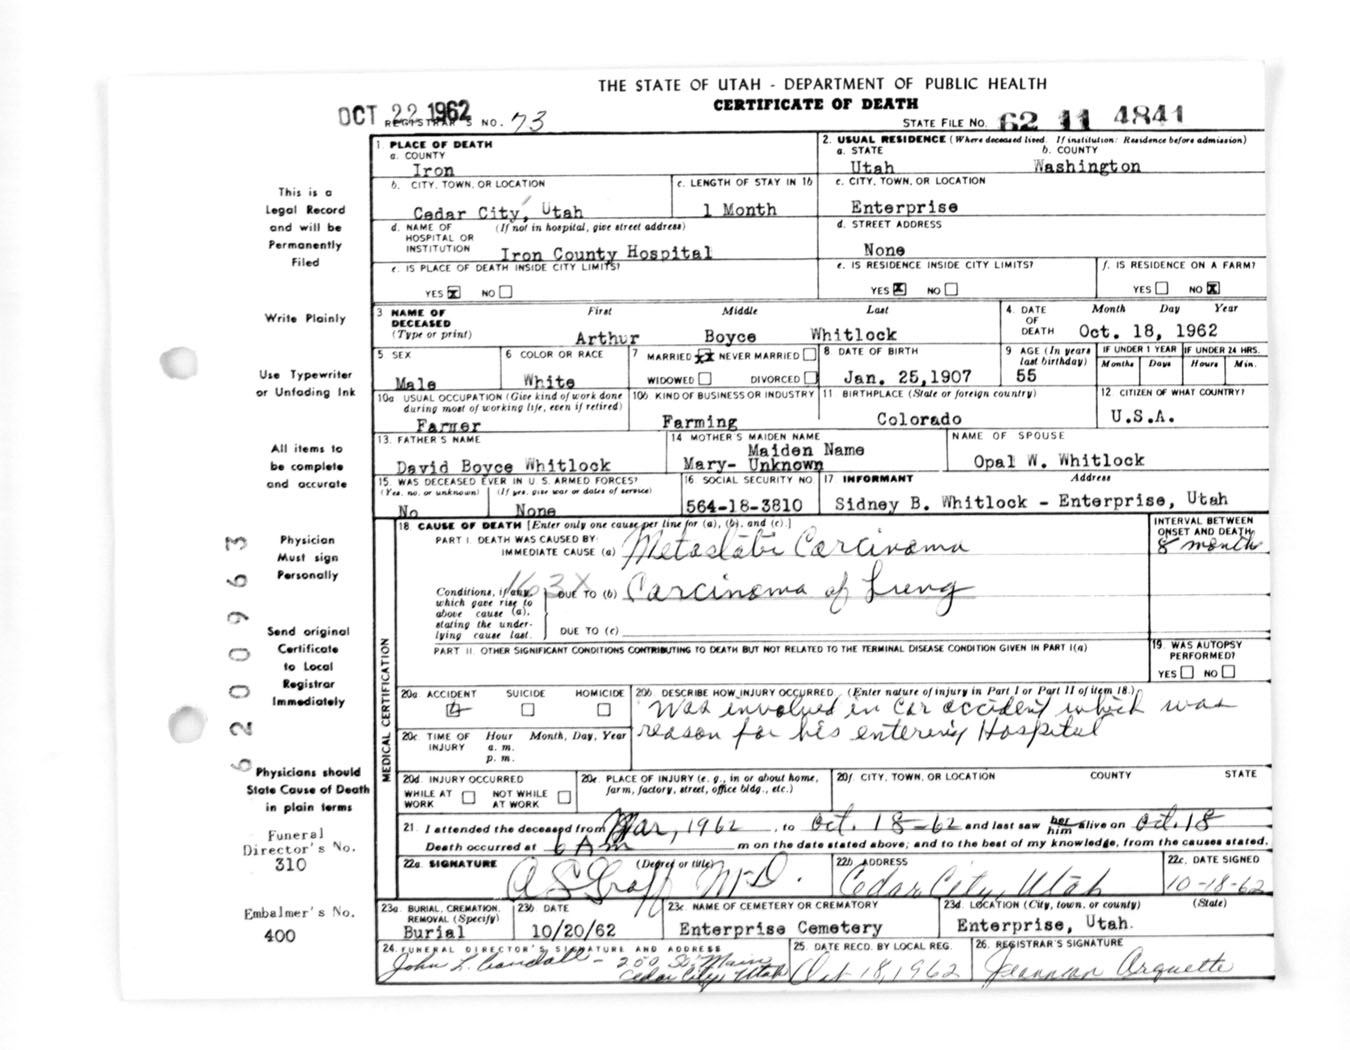 THE STATE OF UTAH - DEPARTMENT OF PUBLIC HEALTH
CERTIFICATE OF DEATH
OCT 22 1962
REGISTRAR'S NO. 73
STATE FILE NO. 62 11 4841
This is a
Legal Record
and will be
Permanently
Filed
Write Plainly
Use Typewriter
or Unfading Ink
All items to
be complete
and accurate
Physician
Must sign
Personally
Send original
Certificate
to Local
Registrar
Immediately
Physicians should
State Cause of Death
in plain terms
Funeral
Director's No.
310
Embalmer's No.
400
6200963
1. PLACE OF DEATH
a. COUNTY
Iron
2. USUAL RESIDENCE (Where deceased lived. If institution: Residence before admission)
a. STATE b. COUNTY
Utah Washington
b. CITY, TOWN, OR LOCATION
Cedar City, Utah
c. LENGTH OF STAY IN 1b
1 Month
c. CITY, TOWN, OR LOCATION
Enterprise
d. NAME OF HOSPITAL OR INSTITUTION (If not in hospital, give street address)
Iron County Hospital
d. STREET ADDRESS
None
e. IS PLACE OF DEATH INSIDE CITY LIMITS?
YES X NO
e. IS RESIDENCE INSIDE CITY LIMITS?
YES X NO
f. IS RESIDENCE ON A FARM?
YES NO X
3 NAME OF DECEASED (Type or print)
First Middle Last
Arthur Boyce Whitlock
4. DATE OF DEATH Month Day Year
Oct. 18, 1962
5 SEX
Male
6 COLOR OR RACE
White
7 MARRIED XX NEVER MARRIED
WIDOWED DIVORCED
8 DATE OF BIRTH
Jan. 25,1907
9 AGE (In years last birthday)
55
IF UNDER 1 YEAR
Months Days
IF UNDER 24 HRS.
Hours Min.
10a USUAL OCCUPATION (Give kind of work done during most of working life, even if retired)
Farmer
10b KIND OF BUSINESS OR INDUSTRY
Farming
11 BIRTHPLACE (State or foreign country)
Colorado
12 CITIZEN OF WHAT COUNTRY?
U.S.A.
13. FATHER'S NAME
David Boyce Whitlock
14 MOTHER'S MAIDEN NAME
Maiden Name
Mary- Unknown
NAME OF SPOUSE
Opal W. Whitlock
15. WAS DECEASED EVER IN U. S. ARMED FORCES?
(Yes, no, or unknown) (If yes, give war or dates of service)
No None
16 SOCIAL SECURITY NO.
564-18-3810
17 INFORMANT Address
Sidney B. Whitlock - Enterprise, Utah
MEDICAL CERTIFICATION
18 CAUSE OF DEATH [Enter only one cause per line for (a), (b), and (c).]
PART I. DEATH WAS CAUSED BY:
IMMEDIATE CAUSE (a) Metastatic Carcinoma
INTERVAL BETWEEN ONSET AND DEATH
8 month
163X
Conditions, if any, which gave rise to above cause (a), stating the underlying cause last.
DUE TO (b) Carcinoma of Lung
DUE TO (c)
PART II. OTHER SIGNIFICANT CONDITIONS CONTRIBUTING TO DEATH BUT NOT RELATED TO THE TERMINAL DISEASE CONDITION GIVEN IN PART I(a)
19. WAS AUTOPSY PERFORMED?
YES NO
20a ACCIDENT SUICIDE HOMICIDE
20b DESCRIBE HOW INJURY OCCURRED (Enter nature of injury in Part I or Part II of item 18.)
Was involved in car accident which was
reason for his entering Hospital
20c TIME OF INJURY Hour Month, Day, Year
a. m.
p. m.
20d. INJURY OCCURRED
WHILE AT WORK NOT WHILE AT WORK
20e. PLACE OF INJURY (e. g., in or about home, farm, factory, street, office bldg., etc.)
20f. CITY, TOWN, OR LOCATION COUNTY STATE
21. I attended the deceased from Mar, 1962, to Oct. 18-62 and last saw her him alive on Oct. 18
Death occurred at 6 Am m on the date stated above; and to the best of my knowledge, from the causes stated.
22a. SIGNATURE (Degree or title)
A S Graff M.D.
22b ADDRESS
Cedar City, Utah
22c. DATE SIGNED
10-18-62
23a. BURIAL, CREMATION, REMOVAL (Specify)
Burial
23b DATE
10/20/62
23c NAME OF CEMETERY OR CREMATORY
Enterprise Cemetery
23d. LOCATION (City, town, or county) (State)
Enterprise, Utah.
24. FUNERAL DIRECTOR'S SIGNATURE AND ADDRESS
John L. - 200 So. Main
Cedar City, Utah
25. DATE RECD. BY LOCAL REG.
Oct 18, 1962
26. REGISTRAR'S SIGNATURE
Arquette